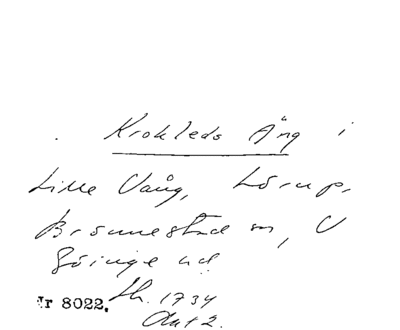 Krokleds Äng i
Lille Vång, Lörup,
Brönnestad sn, V
Göinge hd
Nr 8022. Lh. 1734
Akt 2.